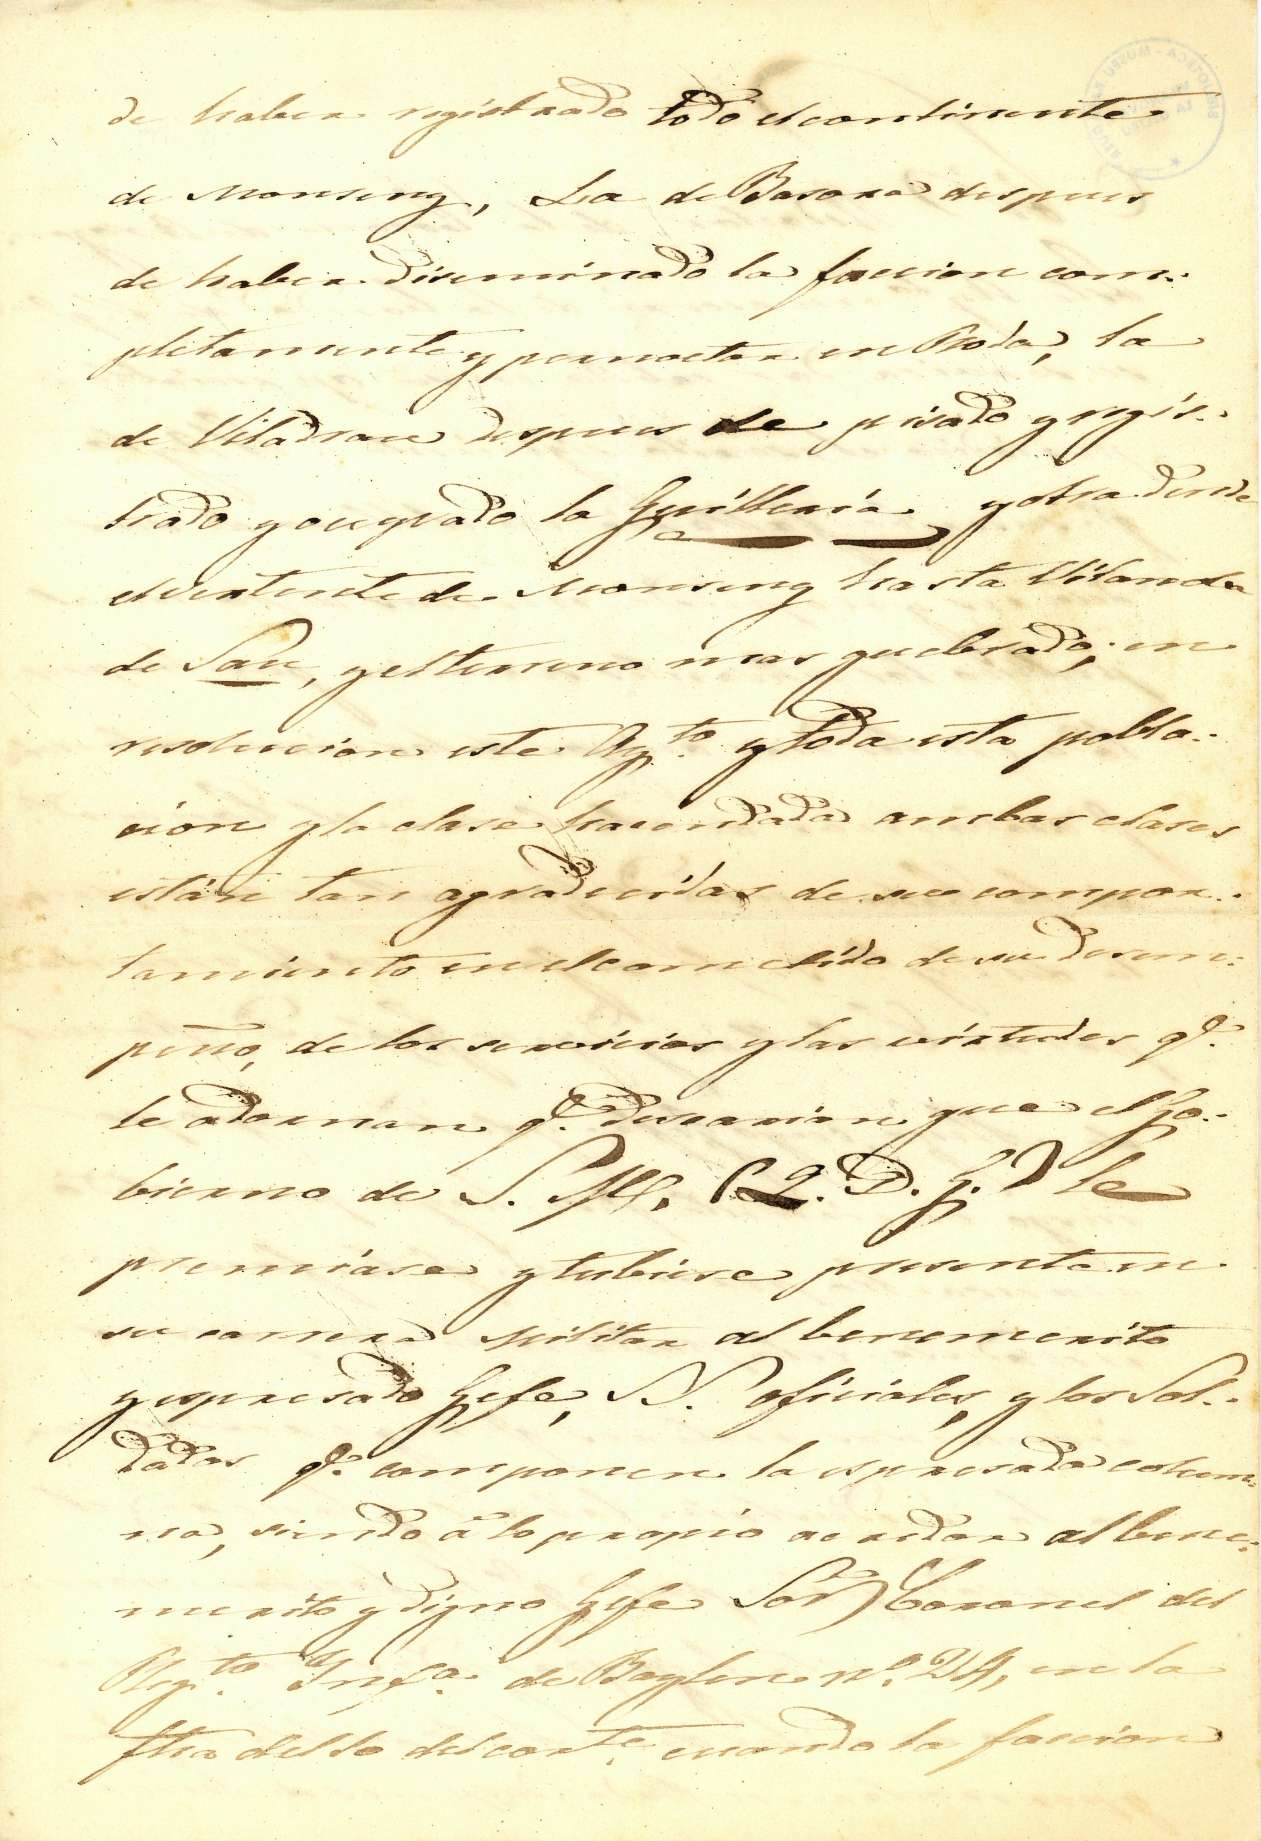 de haber registrado todo el continente
de Monseny, La de Basora despues
de haber diseminado la faccion com-
pletamente y pernoctar en Roda, la
de Viladrau despues de pisado y regis-
trado y ocupado la Guilleria y otra desde
el vertiente de Monseny hasta Vilanova
de Sau, y el terreno mas quebrado; en
resolucion este Ay.to y toda esta pobla-
cion y la clase hacendada ambas clases
están tan agradecidas de su compor-
tamiento en el cometido de su desem-
peño, de los servicios y las virtudes q.e
le adornan q.e desearian que el Go-
bierno de S. M. (Q. D. G.) le
premiáse y tubiese presente en
su carrera militar al benemerito
y espresado Gefe, S. S. oficiales, y los Sol-
dados q.e componen la espresada colum-
na, siendo á lo propio acredor al bene-
merito y digno Gefe Sor. Coronel del
Reg.to Inf.a de Baylen n.o 24, en la
fha del 10 del cor.te cuando la faccion